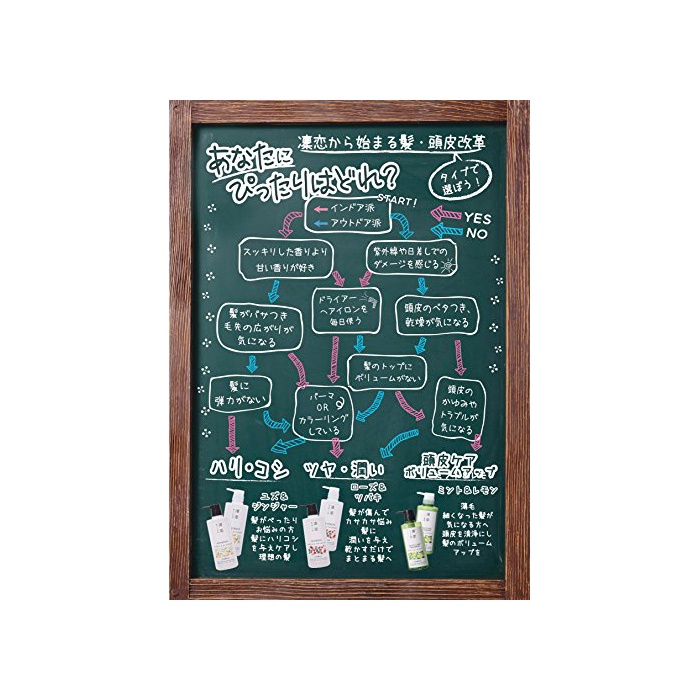 凜恋から始まる髪・頭皮改革
あなたに
ぴったりはどれ？
タイプで
選ぼう！
START!
インドア派
アウトドア派
YES
NO
スッキリした香りより
甘い香りが好き
紫外線や日差しでの
ダメージを感じる
髪がパサつき
毛先の広がりが
気になる
ドライアー
ヘアイロンを
毎日使う
頭皮のベタつき、
乾燥が気になる
髪のトップに
ボリュームがない
髪に
弾力がない
パーマ
OR
カラーリング
している
頭皮の
かゆみや
トラブルが
気になる
ハリ・コシ
ツヤ・潤い
頭皮ケア
ボリュームアップ
ユズ&
ジンジャー
髪がぺったり
お悩みの方
髪にハリコシ
を与えケアし
理想の髪
ローズ&
ツバキ
髪が傷んで
カサカサ悩み
髪に
潤いを与え
乾かすだけで
まとまる髪へ
ミント&レモン
薄毛
細くなった髪が
気になる方へ
頭皮を清浄にし
髪のボリューム
アップを